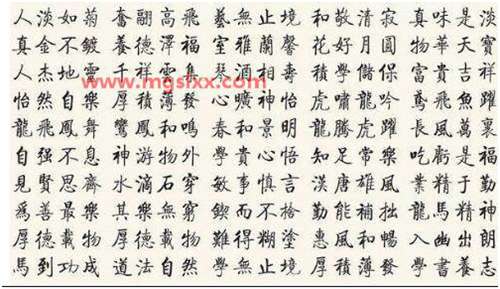 人淡如菊 奮翮高飛 藝無止境 和敬清寂 真味是淡
真金不鍍 養德澤福 室雅蘭馨 花好月圓 物華天寶
人杰地靈 千祥雲集 琴酒相壽 學儲保 富貴吉祥
www.mgsfxx.com
怡然自樂 厚積薄發 心曠神怡 虎嘯龍吟 鳶飛魚躍
龍飛鳳舞 鸞鳳和鳴 春和景明 龍騰虎躍 長風萬裏
自强不息 神游物外 學貴心悟 知足常樂 吃虧是福
見賢思齊 水滴石穿 敏事慎言 漢唐雄風 業精于勤
爲善最樂 其樂無窮 鍥而不捨 勤能補拙 龍馬精神
厚德載物 厚德載物 難得糊塗 惠風和暢 入幽出朗
馬到功成 道法自然 學無止境 厚積薄發 學書養志